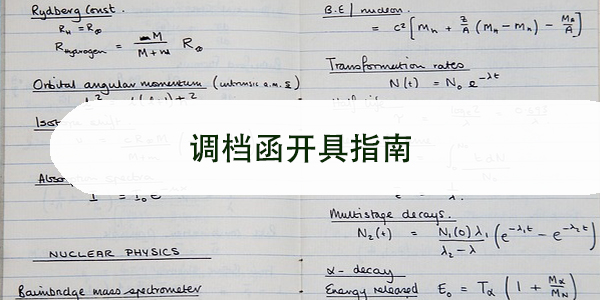 Rydberg Const.
R_H = R_∞
R_Hydrogen = M / (M + m) R_∞
Orbital angular momentum (intrinsic a.m. s)
调档函开具指南
I = I₀e
NUCLEAR PHYSICS
Bainbridge mass spectrometer
B.E / nucleon
= c² [ M_n + Z/A (M_H - M_n) - M_A/A ]
Transformation rates
N(t) = N₀ e^-λt
Multistage decays.
N₂(t) = N₁(0) λ₁ / (λ₂ - λ) (e^-λ₁t - e^-λ₂t)
α - decay
Energy released E₀ = T_α (1 + M_α/M_N)